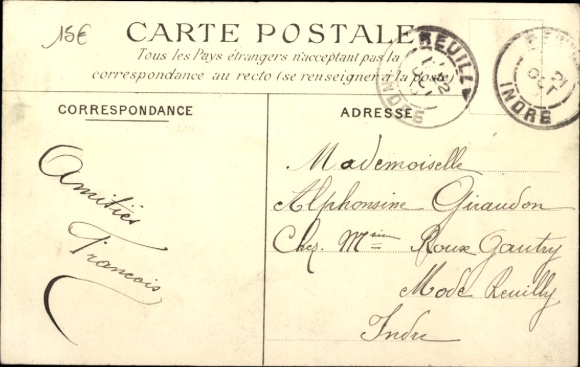 15€
CARTE POSTALE
Tous les Pays étrangers n'acceptant pas la
correspondance au recto (se renseigner à la poste
REUILLY
22
INDRE
21
OCT
INDRE
CORRESPONDANCE
ADRESSE
Amitiés
François
Mademoiselle
Alphonsine Giraudon
Chez Mme Roux Gautry
Mode Reuilly
Indre